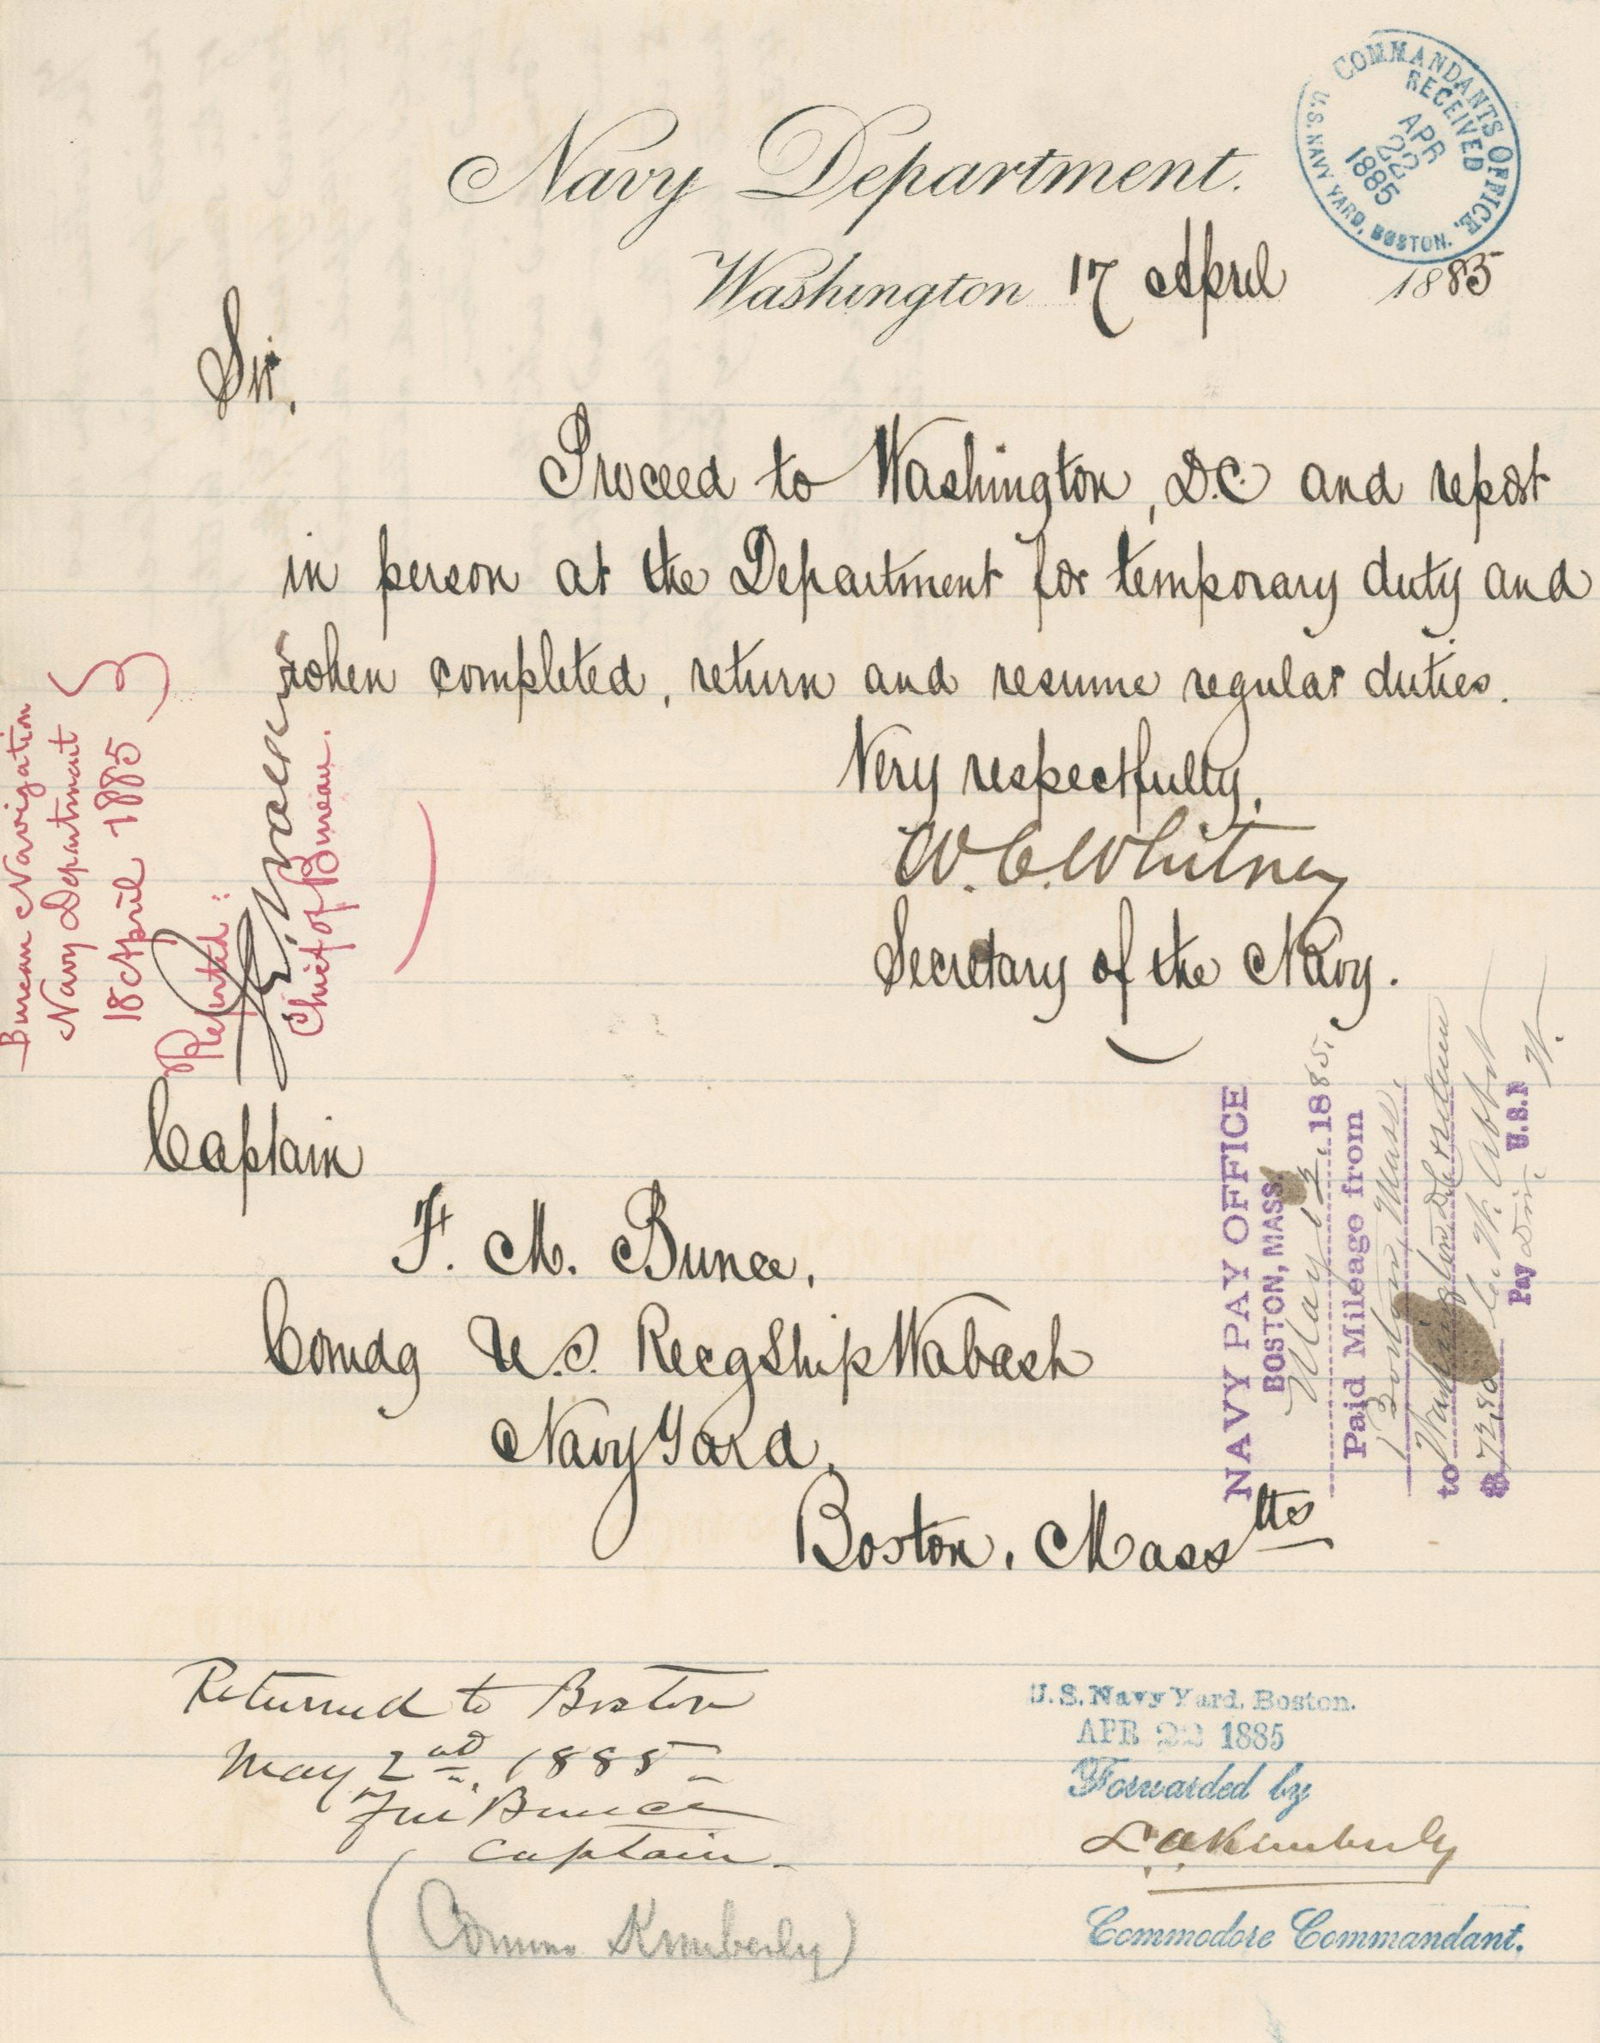 COMMANDANTS OFFICE.
RECEIVED
APR
22
1885
U.S. NAVY YARD, BOSTON.
Navy Department.
Washington 17 April 1885
Sir,
Proceed to Washington, D.C. and report
in person at the Department for temporary duty and
when completed, return and resume regular duties.
Very respectfully,
W. C. Whitney
Secretary of the Navy.
Bureau Navigation
Navy Department
18 April 1885
Reported:
Chief of Bureau.
Captain
F. M. Bunce,
Comdg U.S. Recg Ship Wabash
Navy Yard,
Boston, Masstts
NAVY PAY OFFICE
BOSTON, MASS.
May 12. 1885.
Paid Mileage from
Boston, Mass.
to Washington D.C. & return
Pay Dir. U.S.N.
Returned to Boston
May 2nd, 1885
F M Bunce
Captain.
(Commo Kimberly)
U.S. Navy Yard, Boston.
APR 22 1885
Forwarded by
L. A. Kimberly
Commodore Commandant.